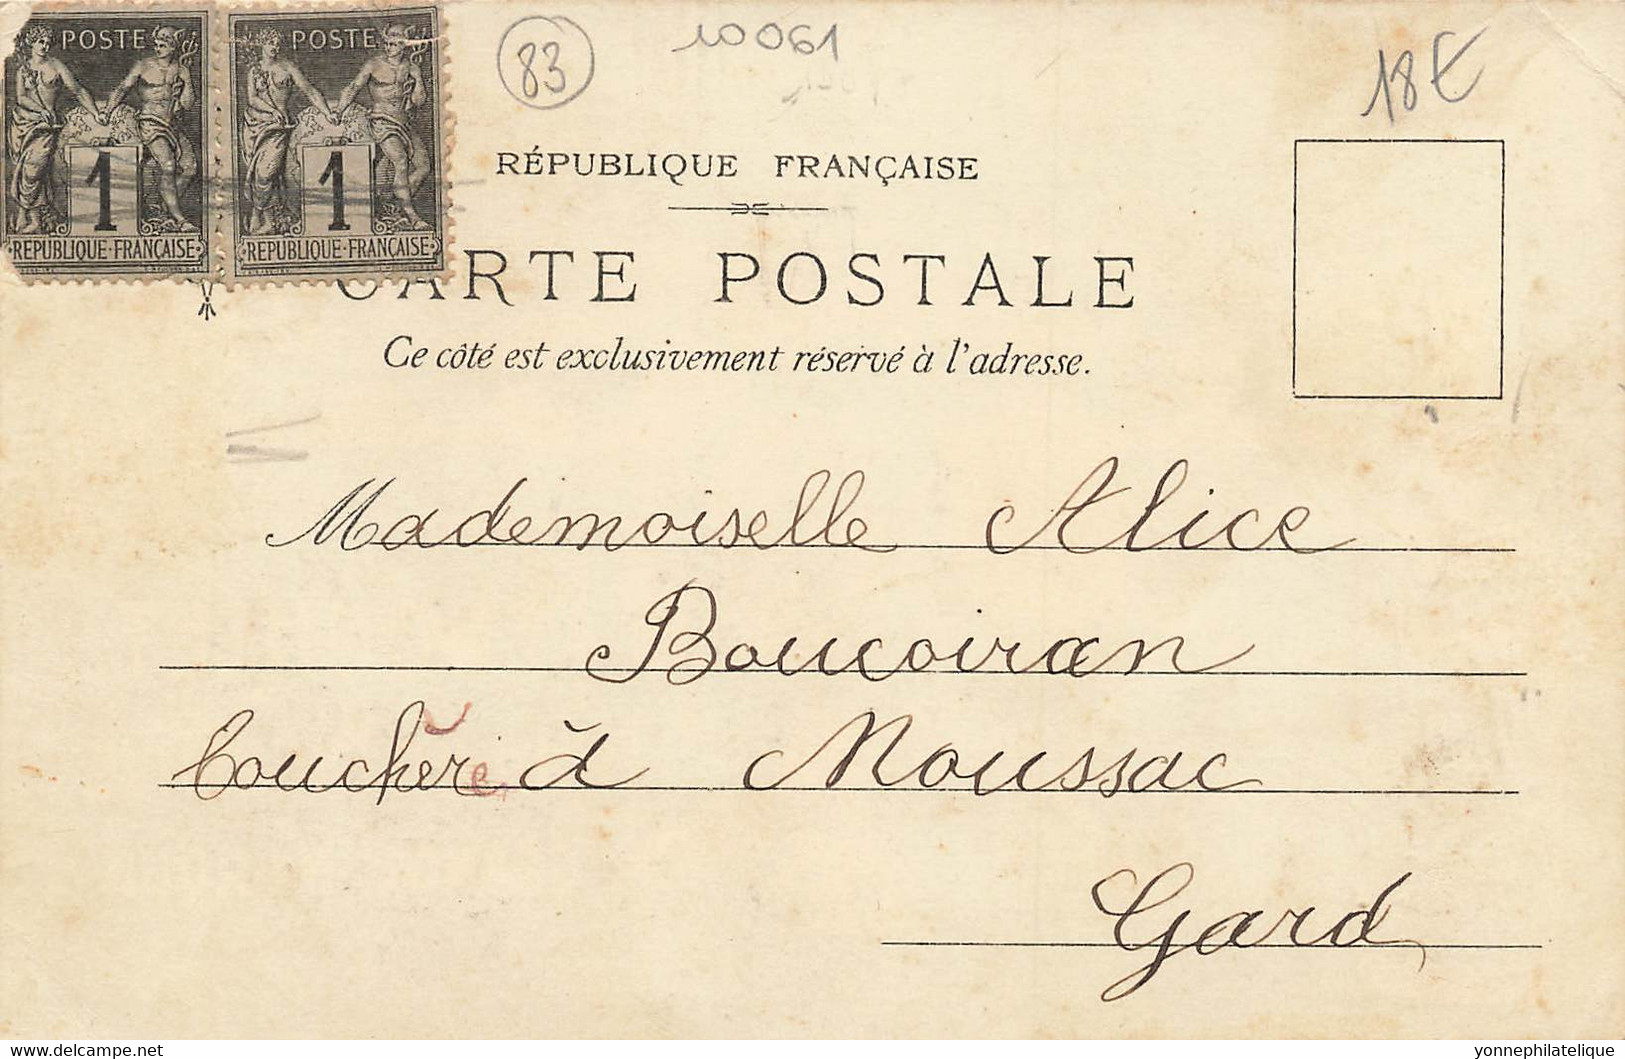 POSTE POSTE
1 1
REPUBLIQUE·FRANÇAISE REPUBLIQUE·FRANÇAISE
83
10061
18€
RÉPUBLIQUE FRANÇAISE
CARTE POSTALE
Ce côté est exclusivement réservé à l'adresse.
Mademoiselle Alice
Boucoiran
à Moussac
Gard
delcampe.net
yonnephilatelique